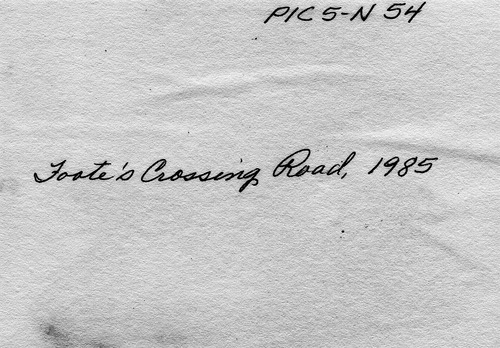 PIC 5-N 54
Foote's Crossing Road, 1985